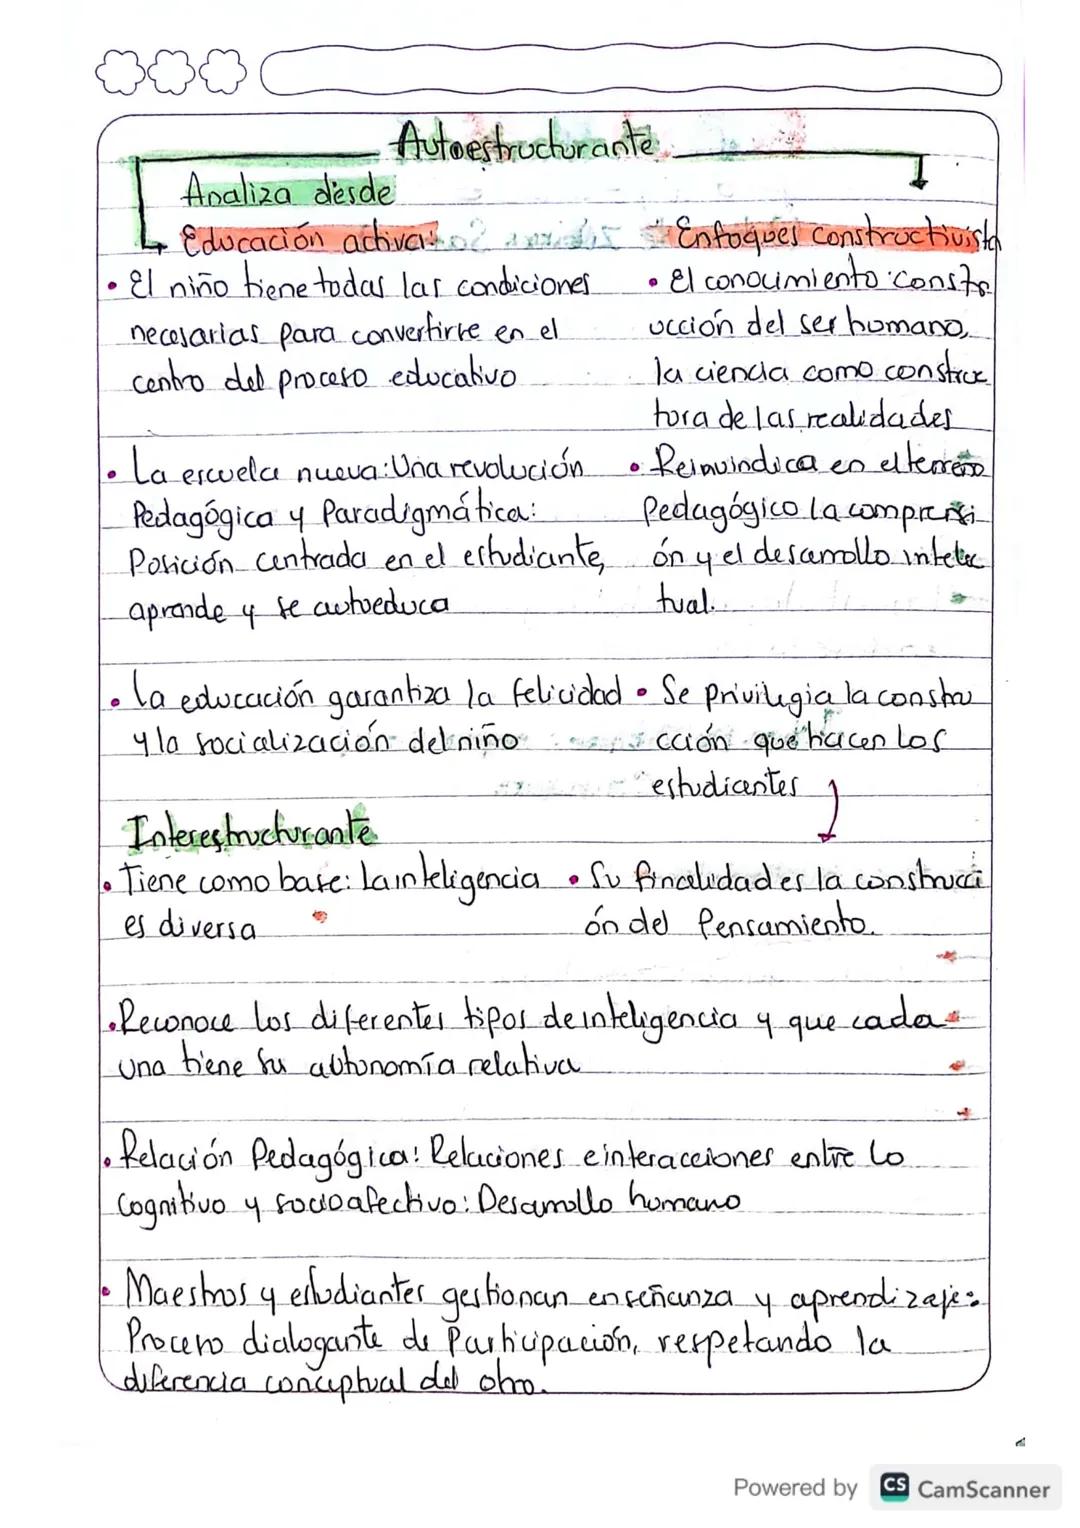 Autoestructurante
Analiza desde
Educación activa:
Enfoques constructivista
• El niño tiene todas las condiciones
necesarias para convertirse en el
centro del proceso educativo
• La escuela nueva: Una revolución
Pedagógica y Paradigmática:
Posición centrada en el estudiante,
aprende y se autoeduca
• La educación garantiza la felicidad
y la socialización del niño
• El conocimiento: constr
ucción del ser humano,
la ciencia como construc
tora de las realidades
• Reinvindica en el terreno
Pedagógico la comprensi
ón y el desarrollo intelec
tual.
• Se privilegia la constru
cción que hacen los
estudiantes
Interestructurante
• Tiene como base: la inteligencia
es diversa
• Su finalidad es la construcci
ón del Pensamiento.
• Reconoce los diferentes tipos de inteligencia y que cada
una tiene su autonomía relativa
• Relación Pedagógica: Relaciones e interacciones entre lo
Cognitivo y socioafectivo: Desarrollo humano
• Maestros y estudiantes gestionan enseñanza y aprendizaje:
Proceso dialogante de Participación, respetando la
diferencia conceptual del otro.
Powered by CS CamScanner